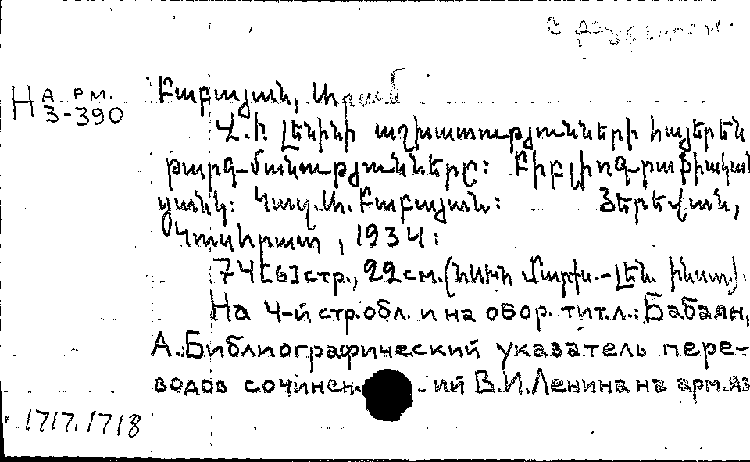 На рм.
3-390
Բաբայան, Արամ
Վ. Ի Լենինի աշխատությունների հայերեն
թարգմանությունները: Բիբլիոգրաֆիական
ցանկ: Կազ. Ա. Բաբայան: Յերեվան,
Կուսհրատ, 1934:
74[6]стр., 22см.
На 4-й стр.обл. и на обор. тит.л.: Бабаян,
А.:Библиографический указатель пере-
водов сочинен- ий В.И.Ленина на арм.яз
1717.1718